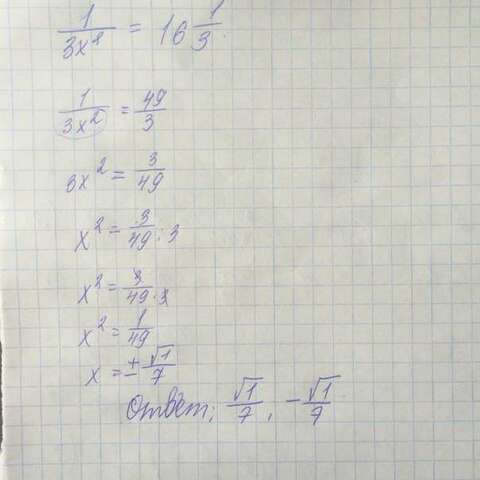 1/3x² = 16 1/3
1/3x² = 49/3
3x² = 3/49
x² = 3/49 : 3
x² = 3/49 · 3
x² = 1/49
x = ± √1/7
Ответ: √1/7, - √1/7